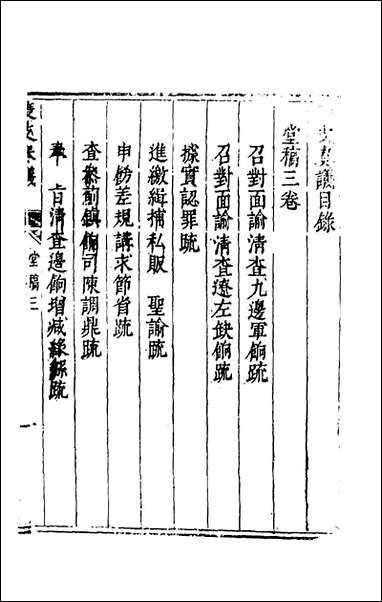 度支奏議目錄
堂稿三卷
召對面諭清查九邊軍餉疏
召對面諭清查遼左缺餉疏
據實認罪疏
進繳緝捕私販 聖諭疏
申飭差規講求節省疏
查參薊鎮餉司陳調鼎疏
奉 旨清查邊餉增減緣繇疏
度支奏議
堂稿三
一